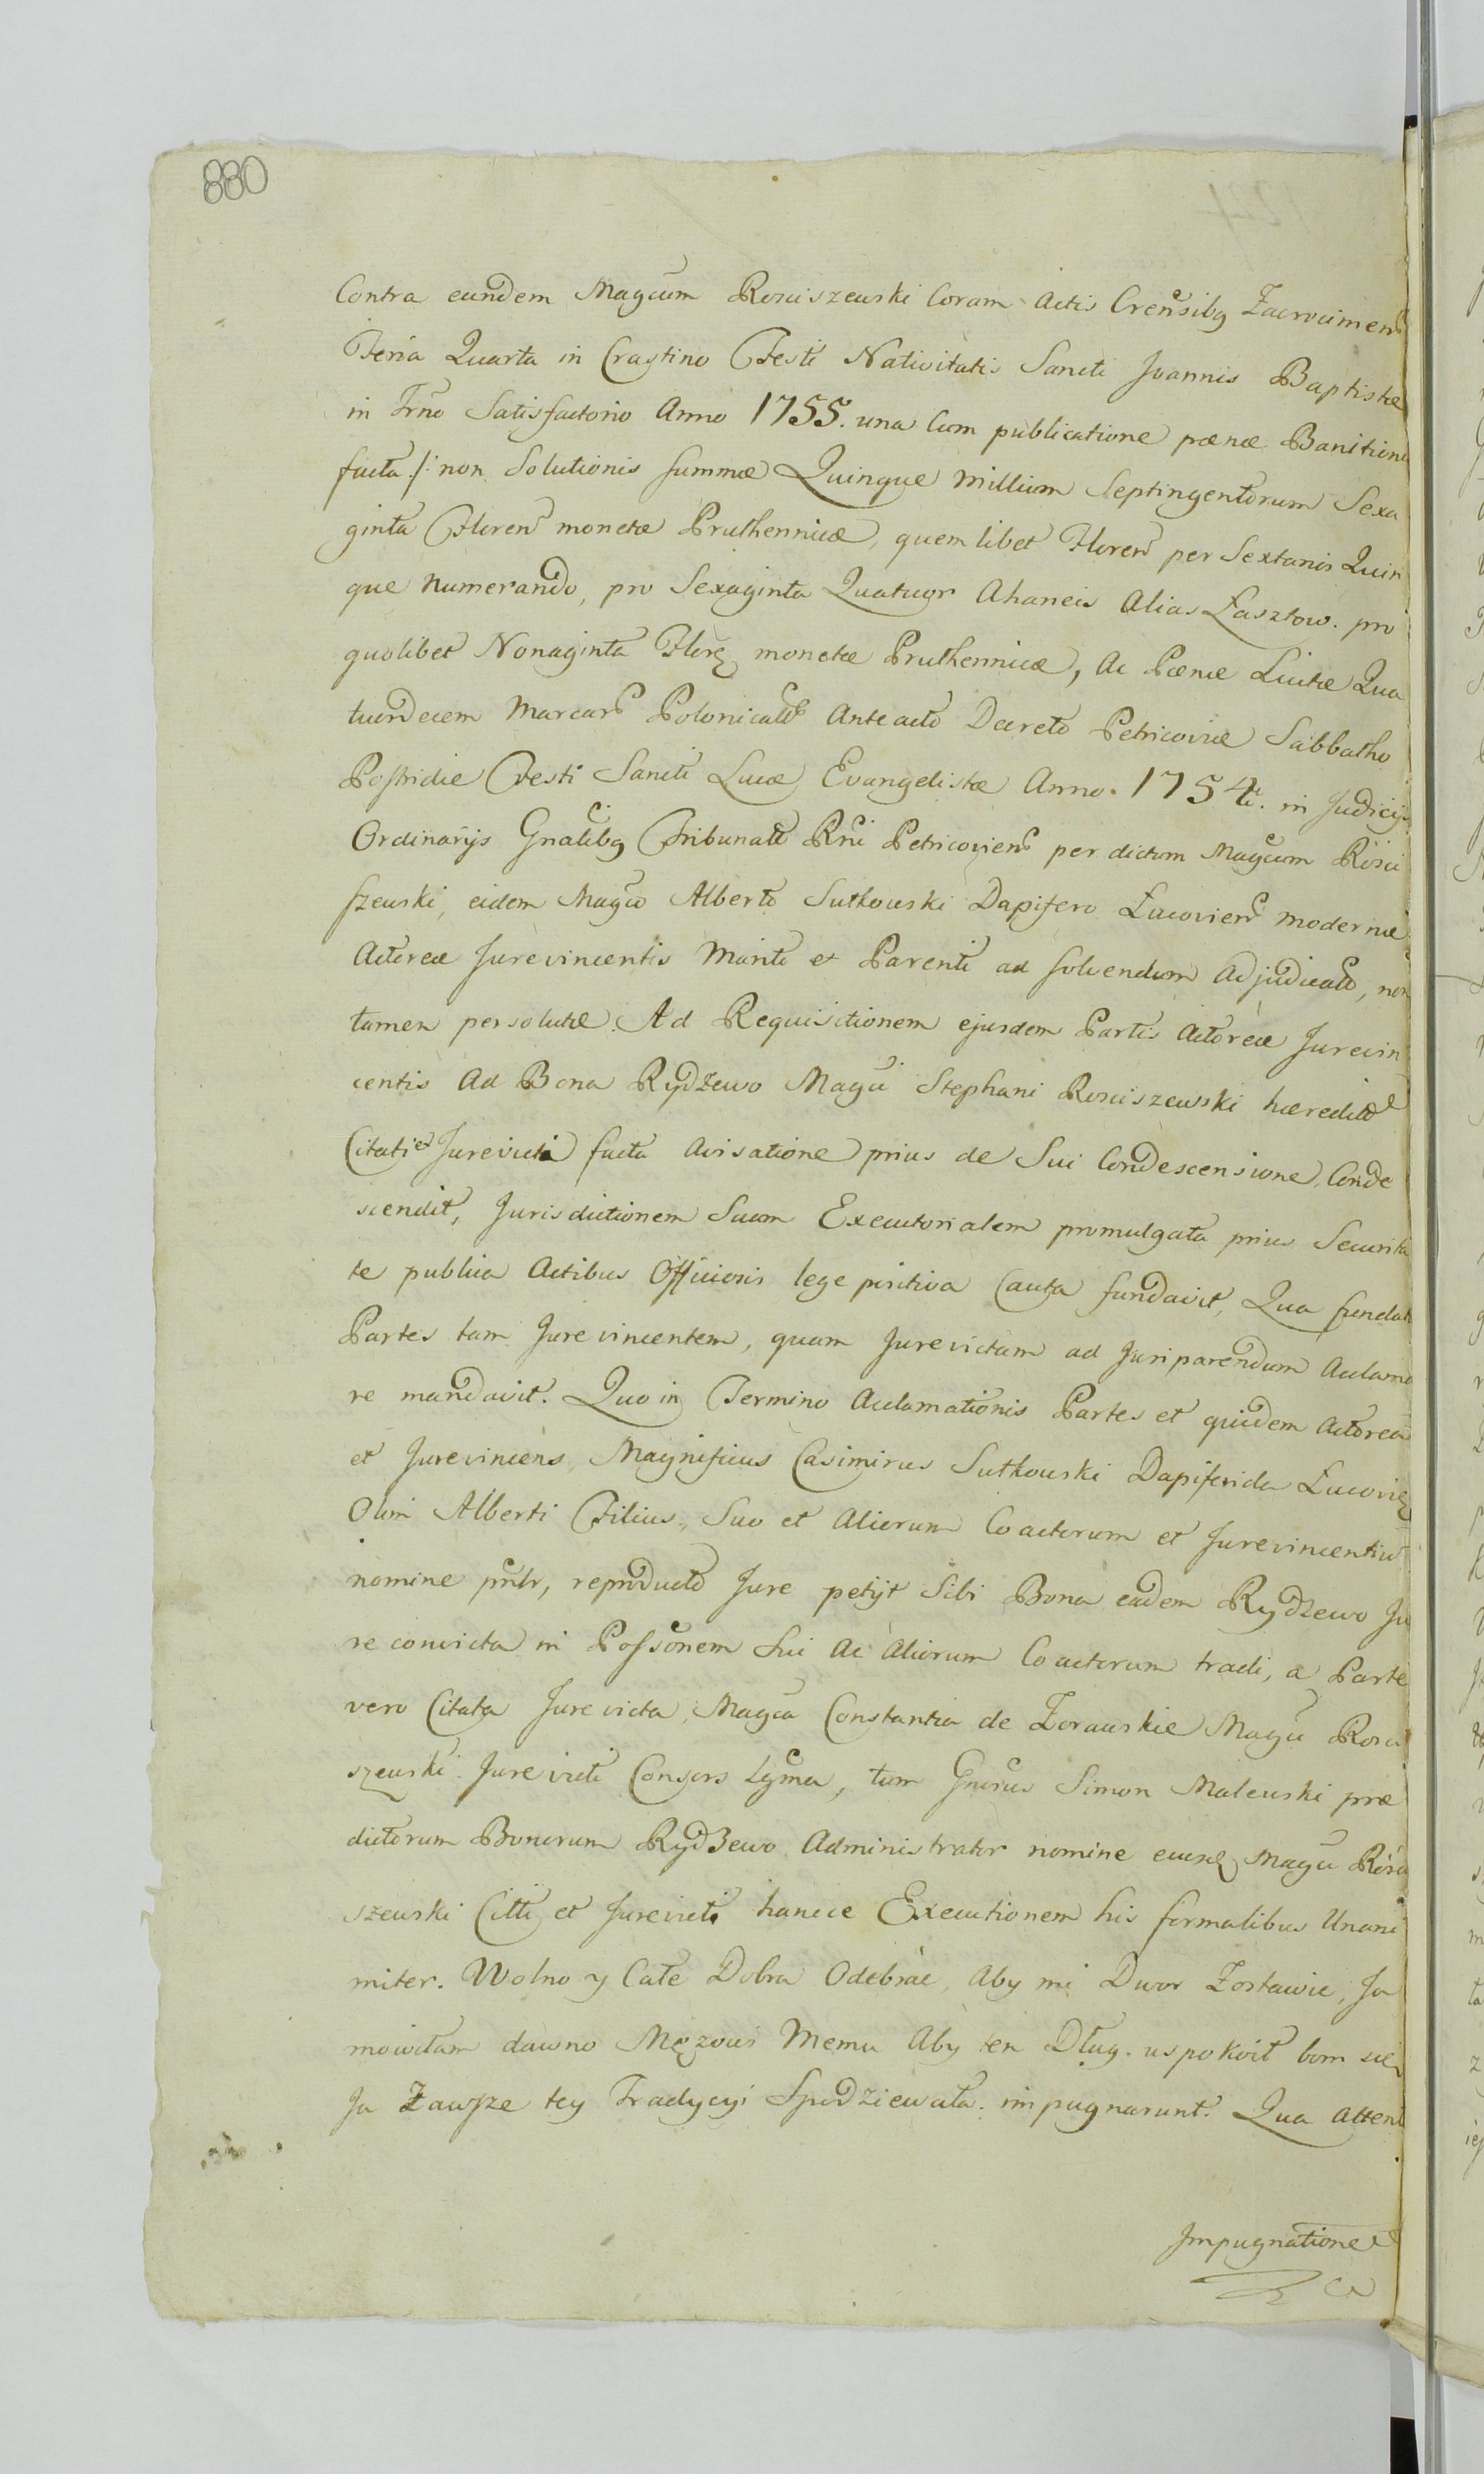 880
Contra eundem Magcum Rosciszewski Coram Actis Crensibq Zacrocimens
Feria Quarta in Crastino Festi Nativitatis Sancti Joannis Baptistæ
in Trno Satisfactorio Anno 1755. una Cum publicatione pænæ Banitionis
facta :/: non Solutionis Summæ Quinque Millium Septingentorum Sexa
ginta Floren monetæ Pruthennicæ, quemlibet Floren per Sextanis Quin
que numerando, pro Sexaginta Quatuor Ahaneis Alias Łasztow. pro
quolibet Nonaginta Flor monetæ Pruthennicæ, Ac Pænæ Luitæ Qua
tuordecem Marcar Polonical Anteacto Decreto Petricoviæ Sabbatho
Postridie Festi Sancti Lucæ Evangelistæ Anno. 1754. in Judicijs
Ordinarijs Gnalibq Tribunal Rni Petricoviens per dictum Magcum Rosci
szewski, eidem Magco Alberto Sutkowski Dapifero Łucoviens modernæ
Actoreæ Jurevincentis Marito et Parenti ad solvendum Adjudicatæ, non
tamen persolutæ. Ad Requisitionem ejusdem Partis Actoreæ Jurevin
centis Ad Bona Rydzewo Magci Stephani Rosciszewski hæredit
Citati et Jurevicti facta Avisatione prius de Sui Condescensione, Conde
scendit, Jurisdictionem Suam Executorialem promulgata prius Securita
te publica Actibus Officiosis lege positiva Cauta fundavit, Qua fundata
Partes tam Jurevincentem, quam Jurevictam ad Juriparendum Acclama
re mandavit. Quo in Termino Acclamationis Partes et quidem Actorea
et Jurevincens, Magnificus Casimirus Sutkowski Dapiferida Łucovien
Olim Alberti Filius, Suo et Aliorum Coactorum et Jurevincentium
nomine pntr, reproducto Jure petijt Sibi Bona eadem Rydzewo Ju
re convicta in Possonem Sui Ac Aliorum Coactorum tradi, a Parte
vero Citata Jurevicta, Magca Constantia de Zorawskie Magci Rosci
szewski Jurevicti Consors Lgma, tum Gnerus Simon Malewski præ
dictorum Bonorum Rydzewo Administrator nomine eiusd Magci Rosci
szewski Citti et Jurevicti hancce Executionem his formalibus Unani
miter. Wolno y Całe Dobra Odebrać, Aby mi Dwor Zostawic, Ja
mowiłam dawno Męzowi Memu Aby ten Dług. uspokoił bom się
Ja Zawsze tey Tradycyi Spodziewała. impugnarunt. Qua Attent
Impugnatione